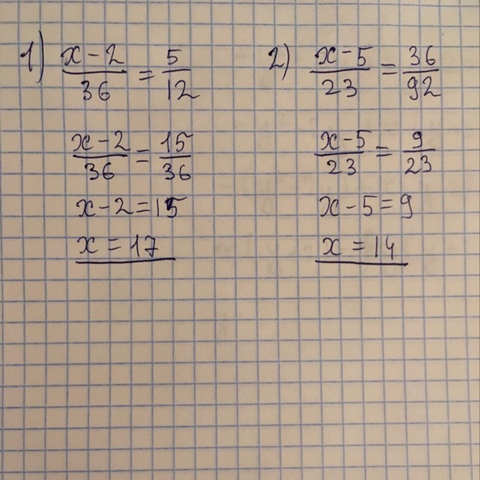 1) x-2/36 = 5/12
x-2/36 = 15/36
x-2=15
x=17
2) x-5/23 = 36/92
x-5/23 = 9/23
x-5=9
x=14